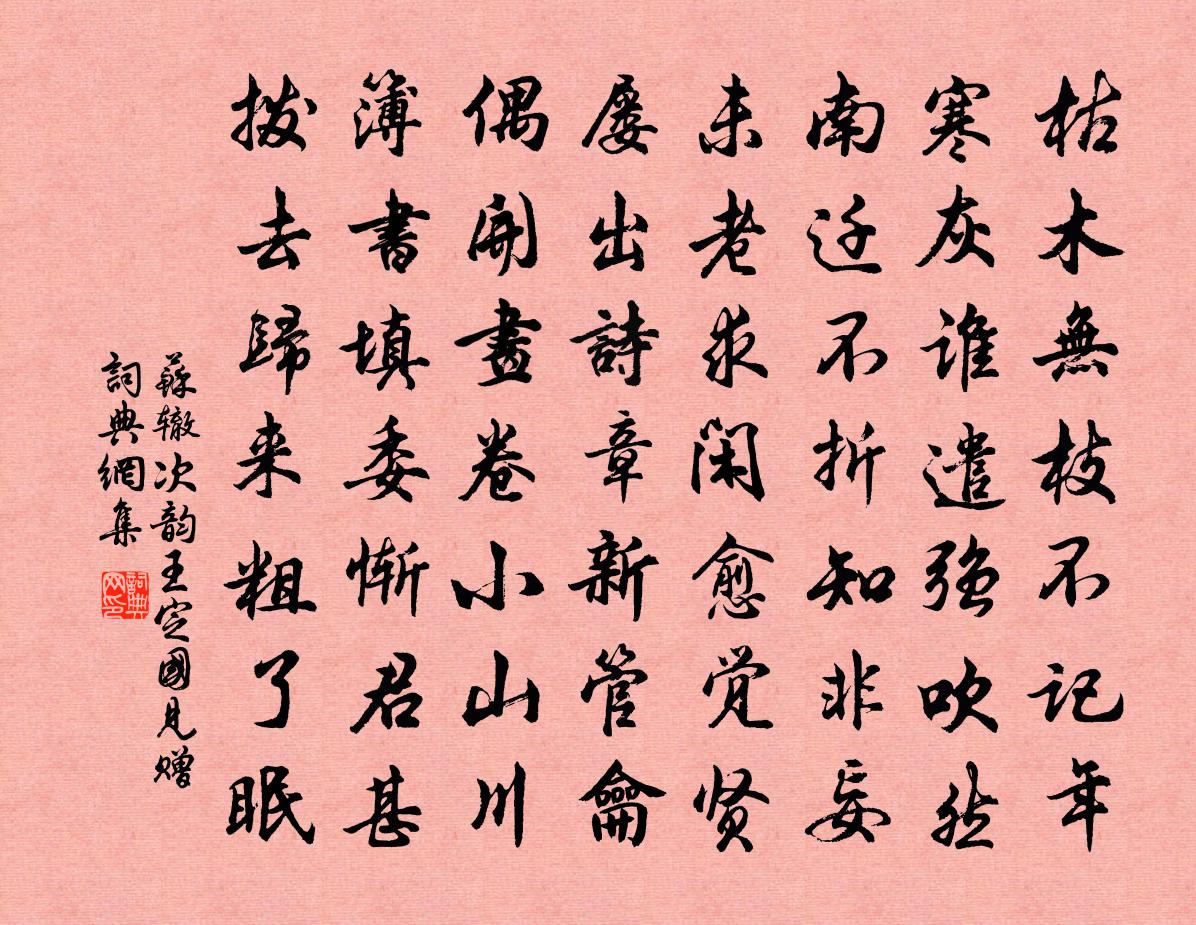 枯木無枝不记年
寒灰谁遣强吹然
南迁不折知非妄
未老求闲愈觉贤
屡出詩章新管龠
偶開畫卷小山川
簿書填委惭君甚
拨去歸来粗了眠
蘇辙次韵王定國見赠
詞典網集
詞典网印